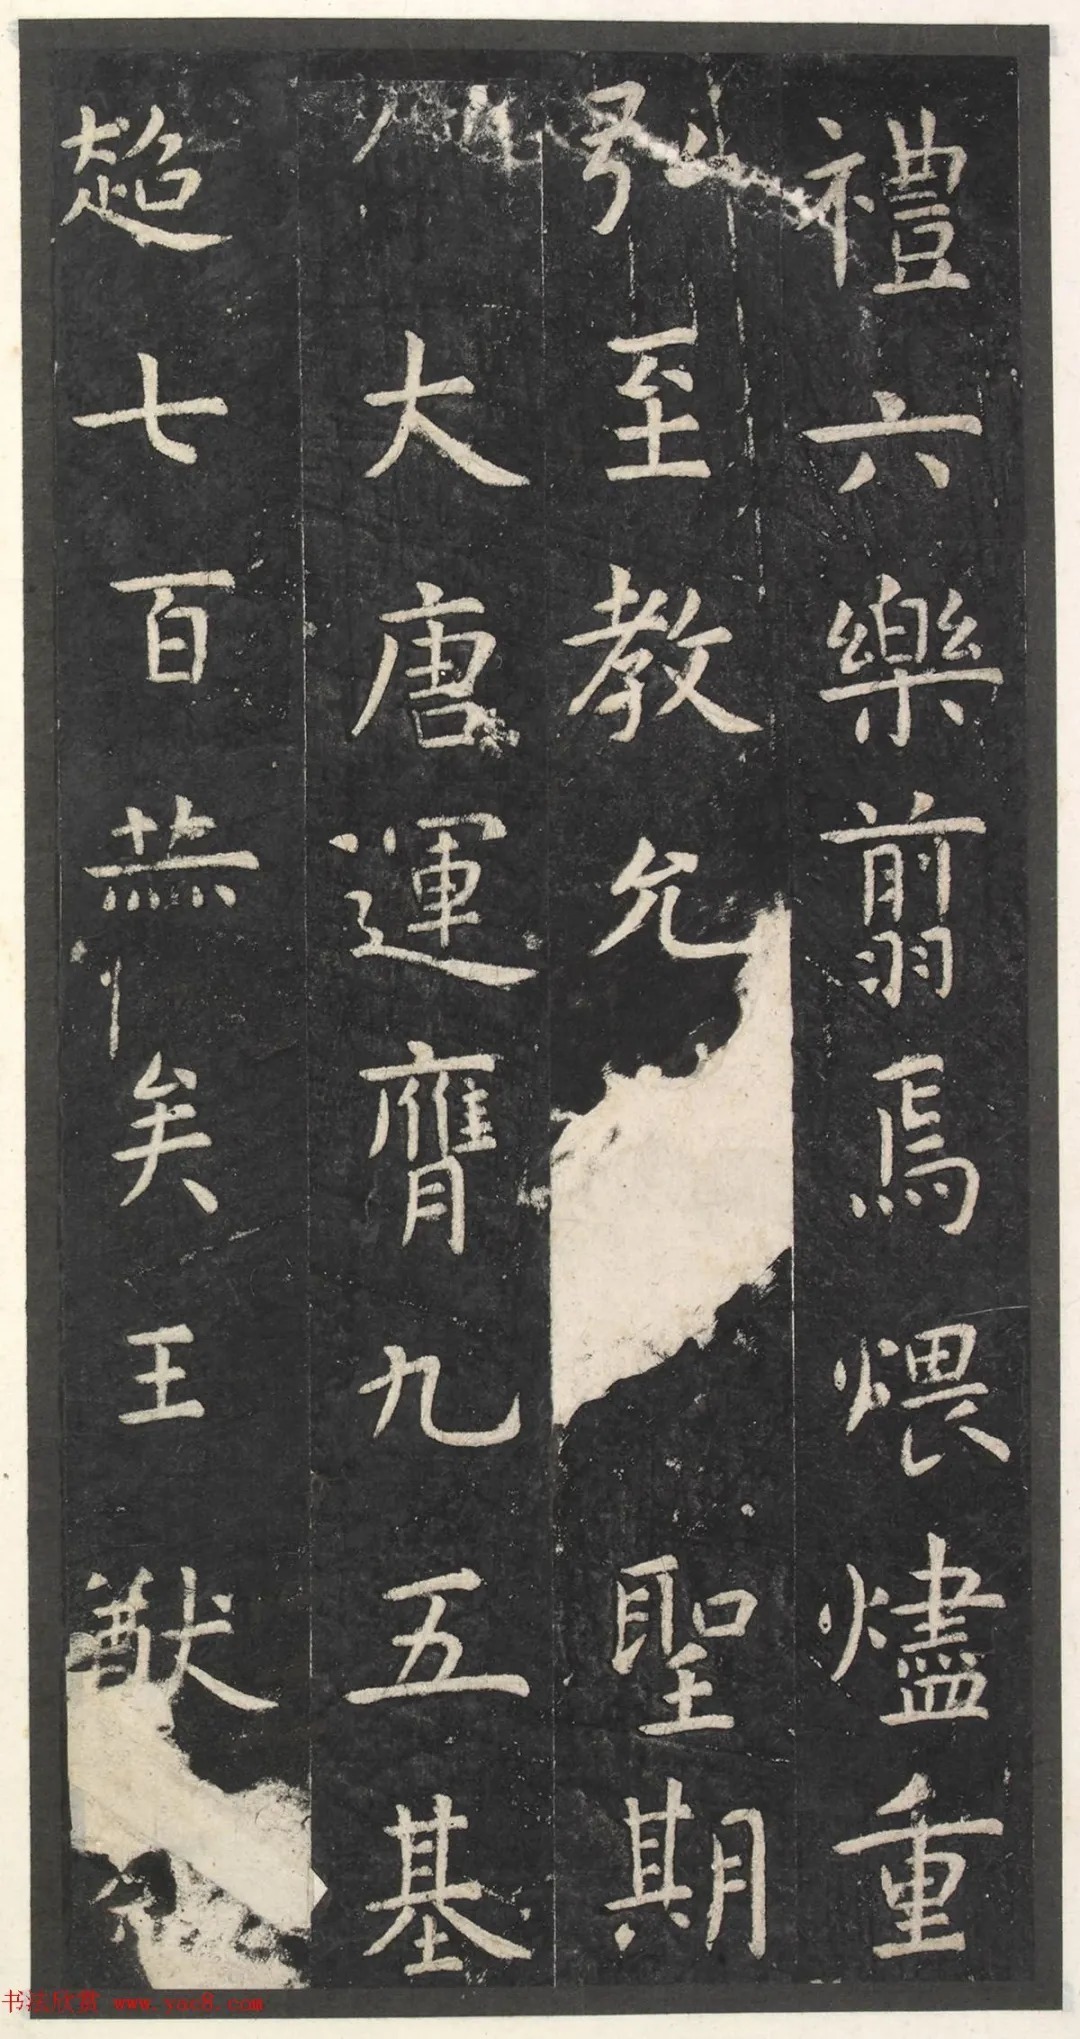 禮六樂翦焉煨燼重
弘至教允聖期
大唐運膺九五基
超七百𠦜矣王猷
书法欣赏 www.yac8.com